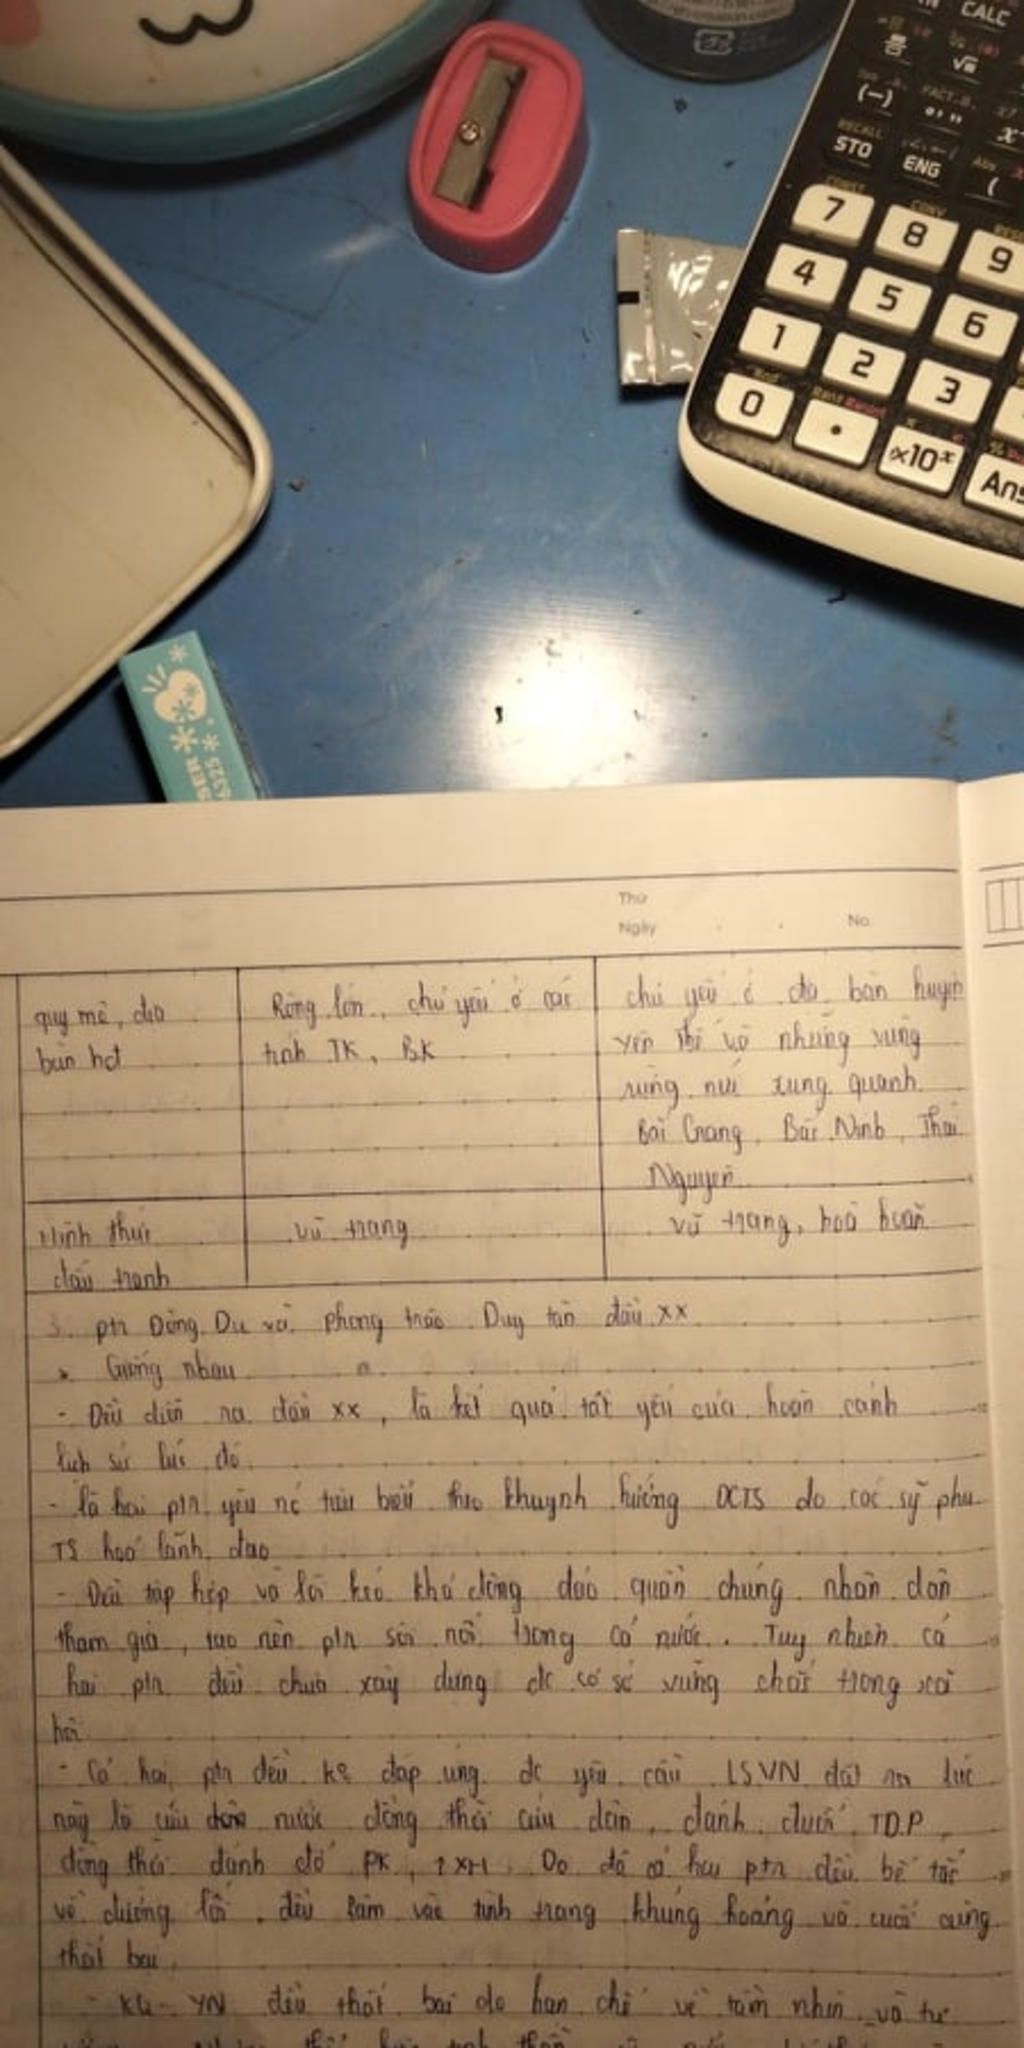 CALC
(-)
FACT
RECALL
STO
ENG
Abs
(
7
8
9
4
5
6
1
2
3
0
.
×10ˣ
Ans
6325
Thứ
Ngày
No
quy mô, địa
bàn hđ
Rộng lớn, chủ yếu ở các
tỉnh TK, BK
chủ yếu ở địa bàn huyện
Yên Thế và những vùng
rừng núi xung quanh
Bắc Giang, Bắc Ninh, Thái
Nguyên
Hình thức
đấu tranh
vũ trang
vũ trang, hoà hoãn
3. ptr Đông Du và phong trào Duy tân đầu XX
* Giống nhau
- Đều diễn ra đầu XX, là kết quả tất yếu của hoàn cảnh
lịch sử lúc đó.
- là hai ptr yêu nc tiêu biểu theo khuynh hướng DCTS do các sỹ phu
TS hoá lãnh đạo
- Đều tập hợp và lôi kéo khá đông đảo quần chúng nhân dân
tham gia, tạo nên ptr sôi nổi trong cả nước. Tuy nhiên cả
hai ptr đều chưa xây dựng đc cơ sở vững chắc trong xã
hội.
- Cả hai ptr đều ko đáp ứng đc yêu cầu LSVN đặt ra lúc
này là cứu nước đồng thời cứu dân, đánh đuổi TDP,
đồng thời đánh đổ PK, Do đó cả hai ptr đều bế tắc
về đường lối, đều lâm vào tình trạng khủng hoảng và cuối cùng
thất bại.
- KN YN đều thất bại do hạn chế về tầm nhìn và tư